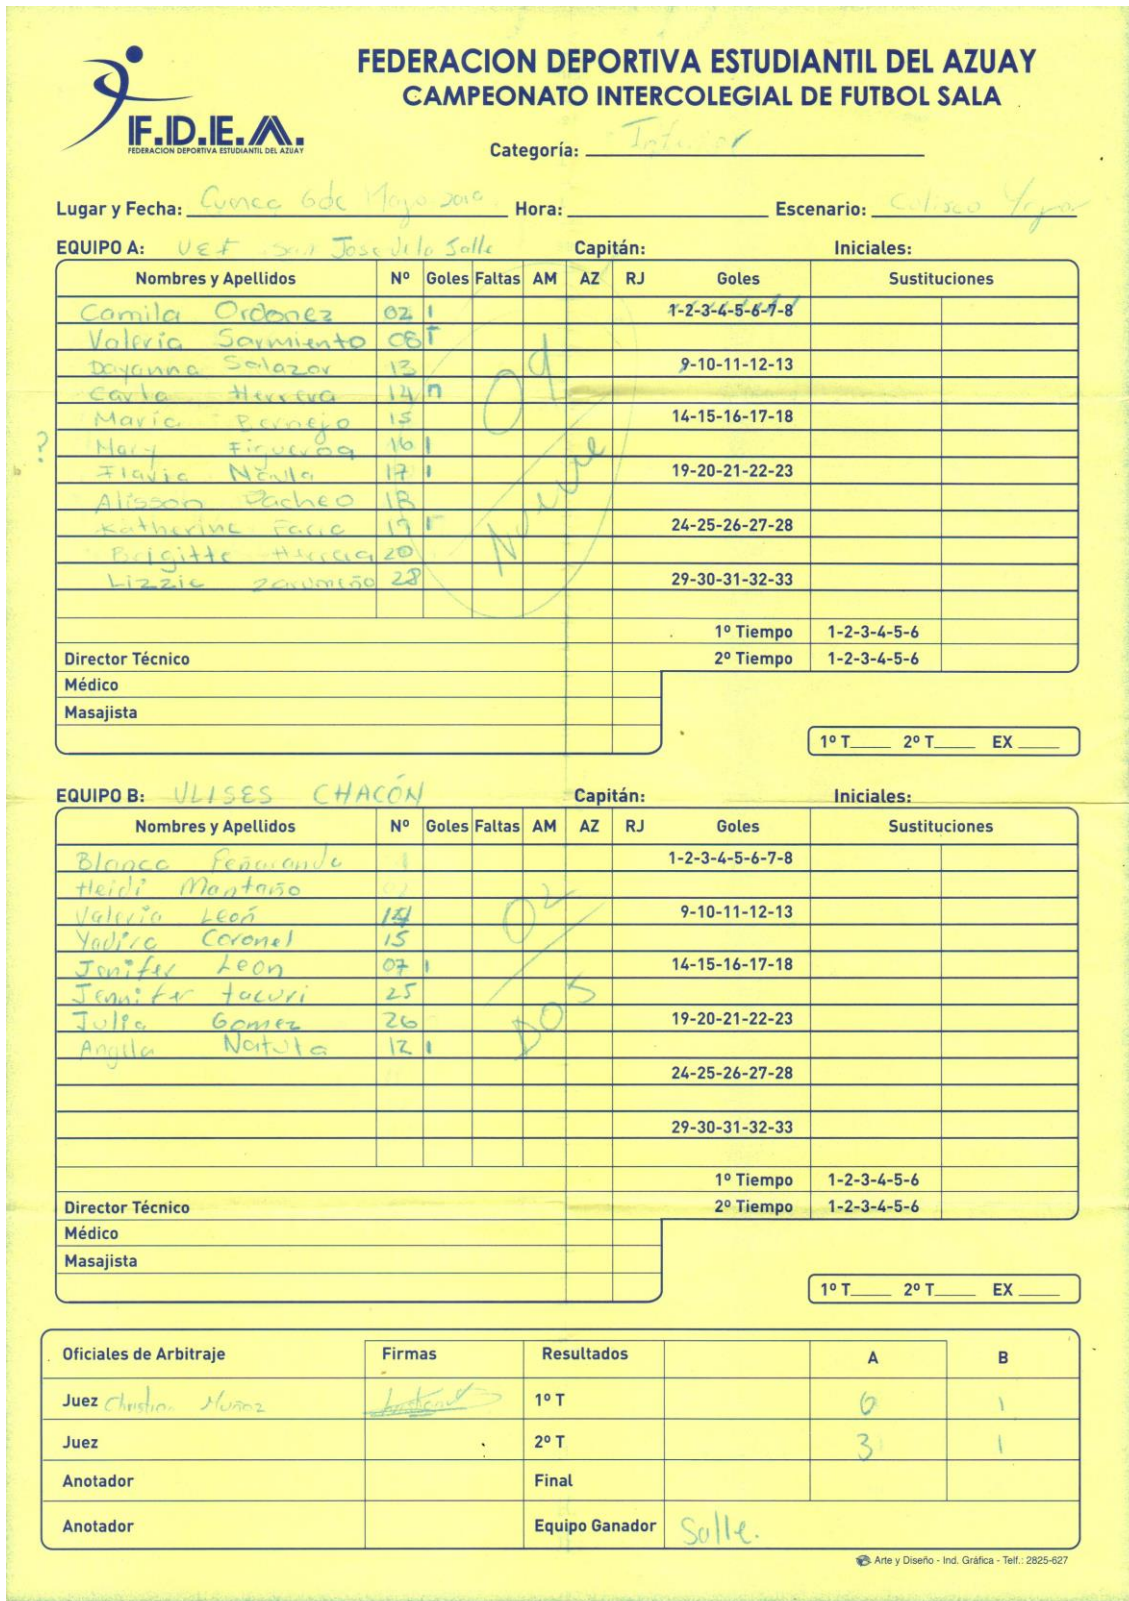 FEDERACION DEPORTIVA ESTUDIANTIL DEL AZUAY
CAMPEONATO INTERCOLEGIAL DE FUTBOL SALA
F.D.E.A.
FEDERACION DEPORTIVA ESTUDIANTIL DEL AZUAY
Categoría: Inferior
Lugar y Fecha: Cuenca 6 de Mayo 2019 Hora: Escenario: Coliseo
EQUIPO A: UEF San Jose de la Salle Capitán: Iniciales:
Nombres y Apellidos Nº Goles Faltas AM AZ RJ Goles Sustituciones
Camila Ordonez 02 1 1-2-3-4-5-6-7-8
Valeria Sarmiento 08
Dayanna Salazar 13 9-10-11-12-13
Carla Herrera 14
María Bernejo 15 14-15-16-17-18
? Mary Figueroa 16 1
Flavia Naula 17 1 19-20-21-22-23
Alisson Pacheo 18
Katherine 19 24-25-26-27-28
Brigitte Herrera 20
Lizzie 28 29-30-31-32-33
09
Nueve
1º Tiempo 1-2-3-4-5-6
Director Técnico 2º Tiempo 1-2-3-4-5-6
Médico
Masajista
1º T 2º T EX
EQUIPO B: ULISES CHACÓN Capitán: Iniciales:
Nombres y Apellidos Nº Goles Faltas AM AZ RJ Goles Sustituciones
Blanca Peñaranda 1 1-2-3-4-5-6-7-8
Heidi Mantaño 02
Valeria León 14 9-10-11-12-13
Yadira Coronel 15
Jenifer Leon 07 1 14-15-16-17-18
Jennifer tacuri 25
Julia Gomez 26 19-20-21-22-23
Angela 12 1
02
DOS
24-25-26-27-28
29-30-31-32-33
1º Tiempo 1-2-3-4-5-6
Director Técnico 2º Tiempo 1-2-3-4-5-6
Médico
Masajista
1º T 2º T EX
Oficiales de Arbitraje Firmas Resultados A B
Juez Christian Muñoz 1º T 6 1
Juez 2º T 3 1
Anotador Final
Anotador Equipo Ganador Salle.
Arte y Diseño - Ind. Gráfica - Telf.: 2825-627